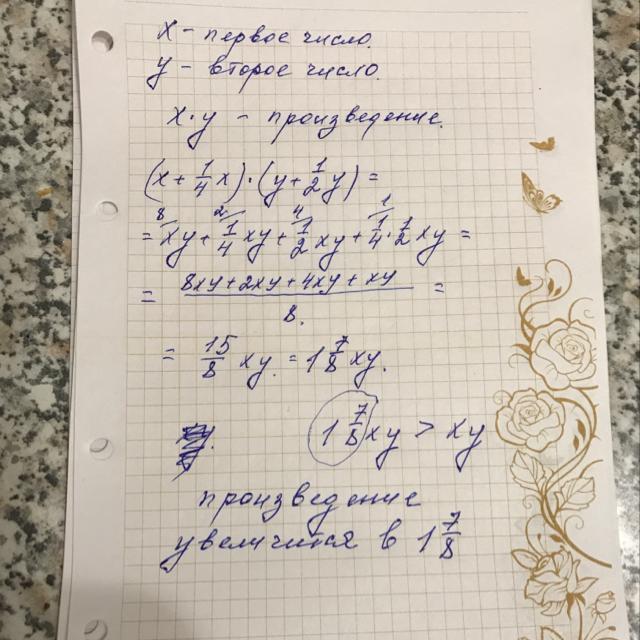 x - первое число.
y - второе число.
x·y - произведение.
(x + 1/4 x)·(y + 1/2 y) =
8/ 2/ 4/ 1/
= xy + 1/4 xy + 1/2 xy + 1/4 · 1/2 xy =
= (8xy + 2xy + 4xy + xy)/8. =
= 15/8 xy. = 1 7/8 xy.
1 7/8 xy > xy
произведение
увеличится в 1 7/8